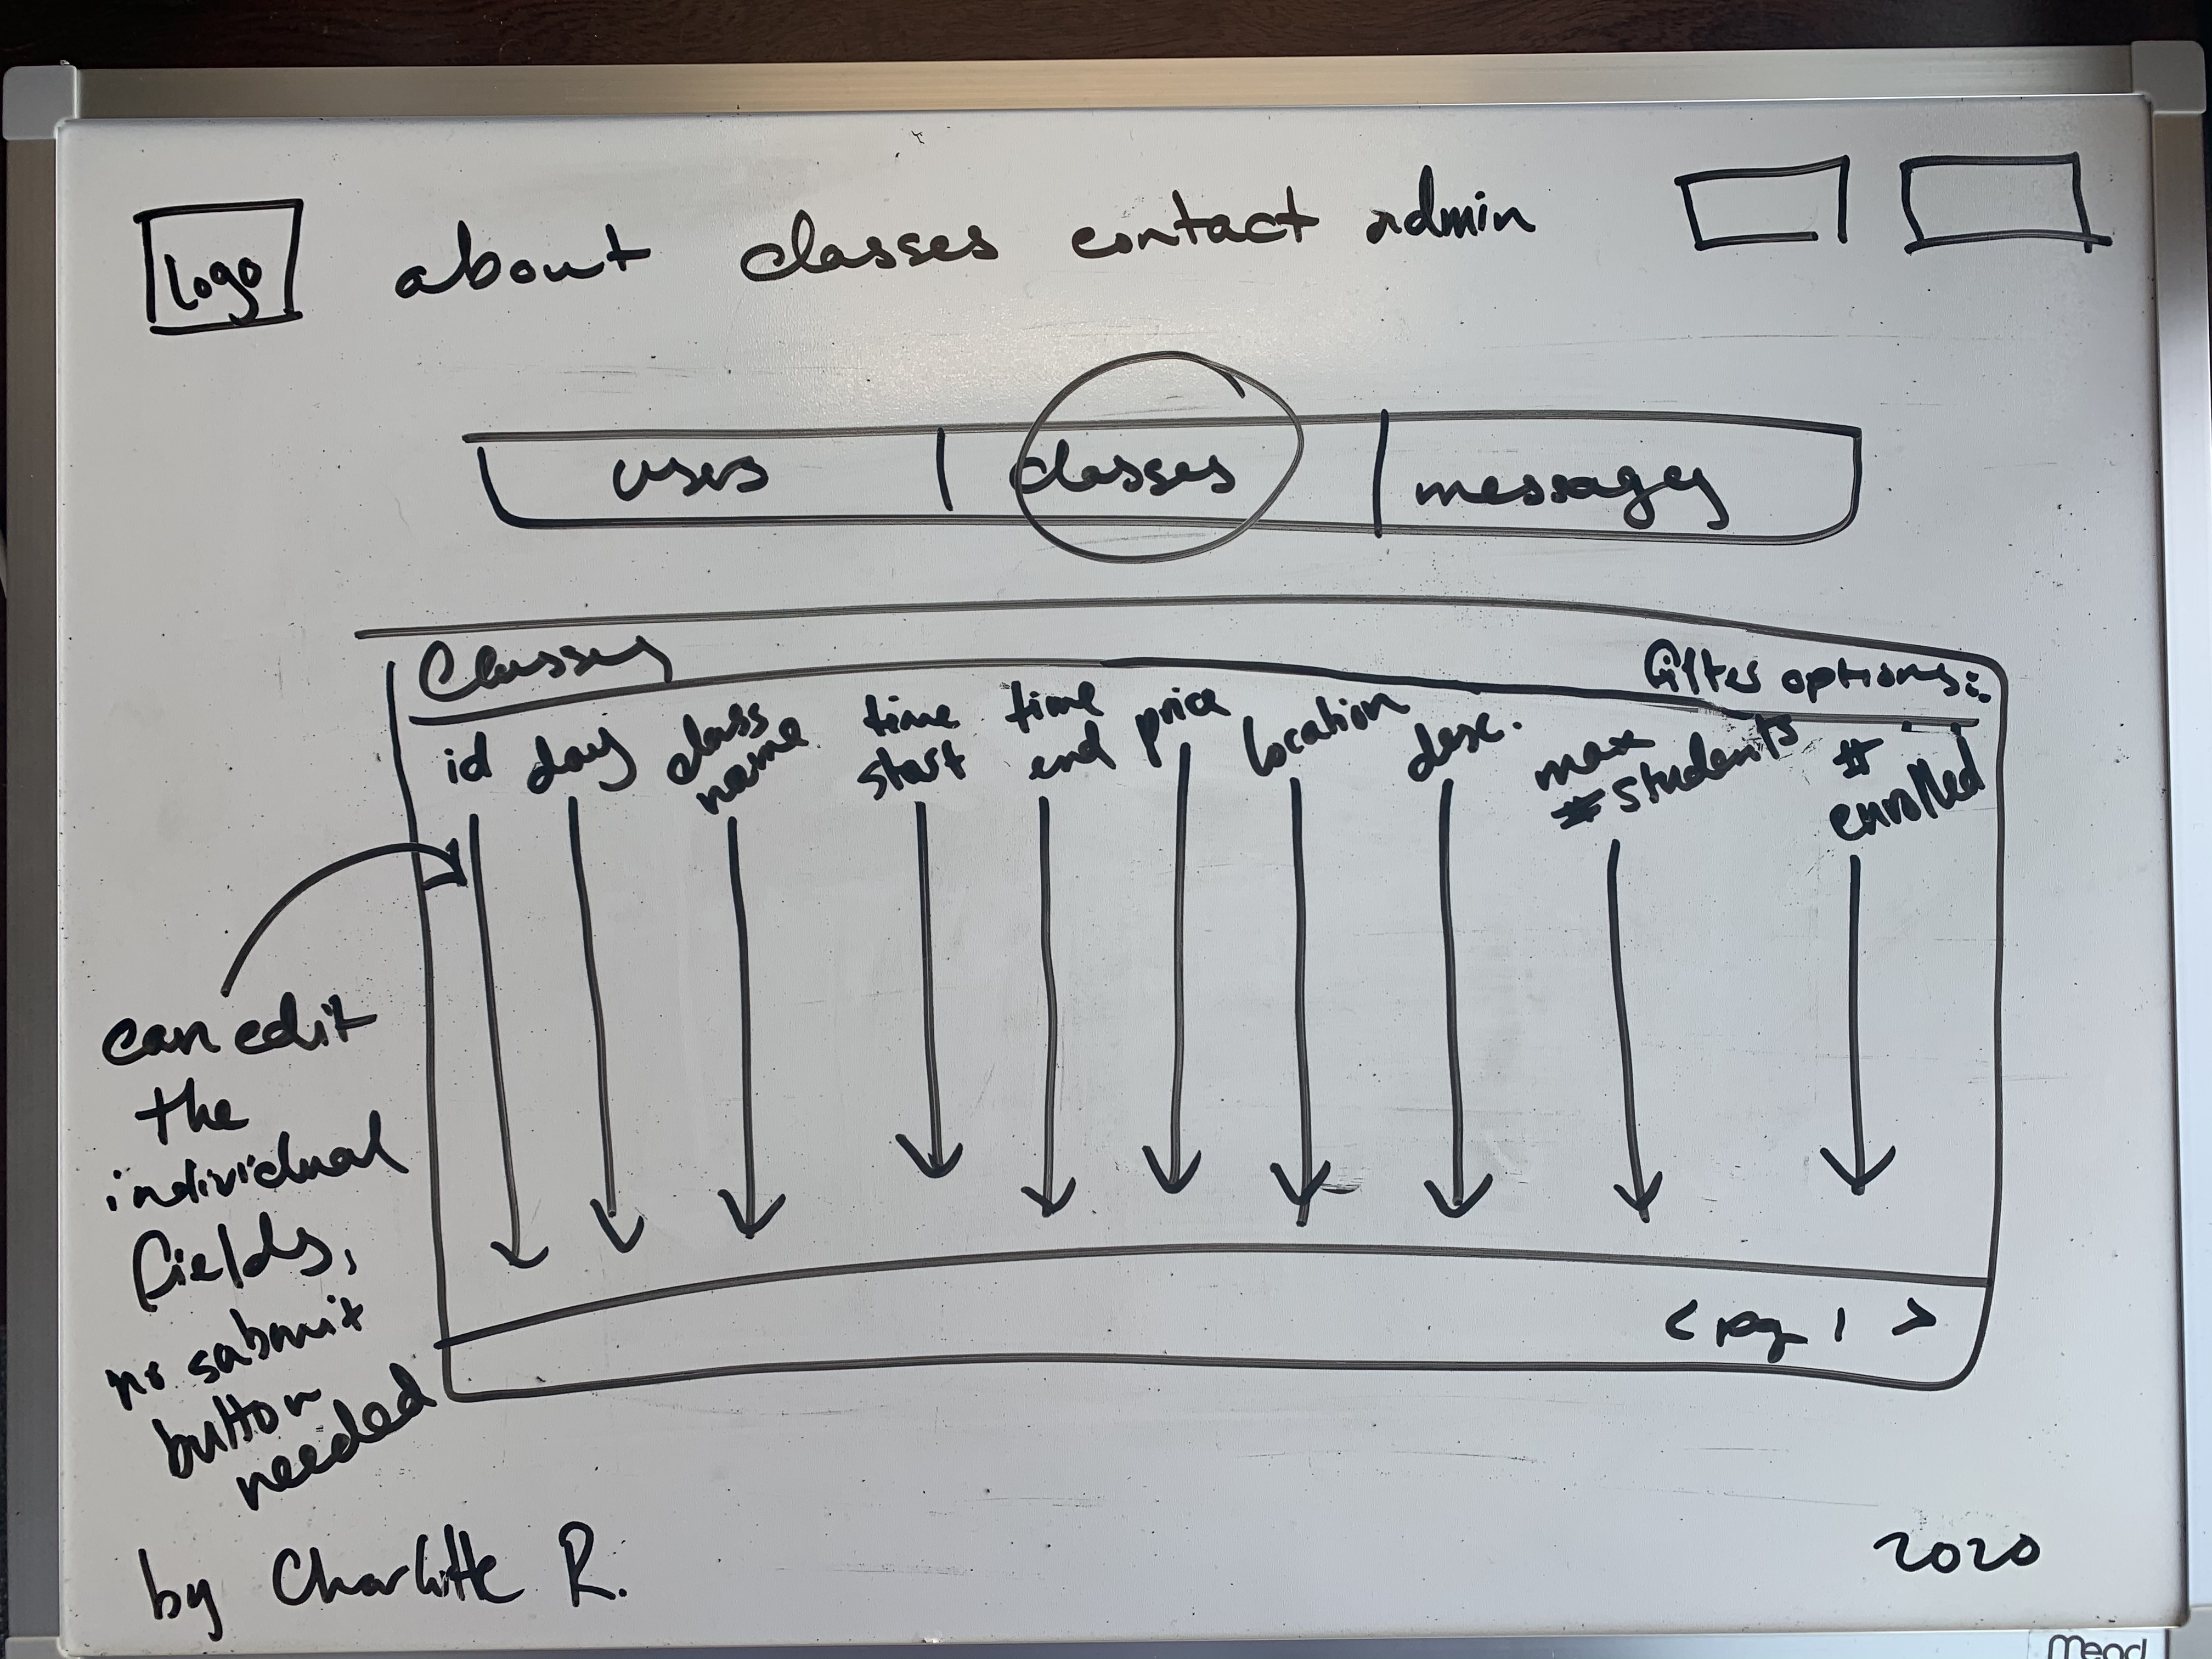 logo about classes contact admin
users classes messages
Classes filter options:
id day class name time start time end price location desc. max # students # enrolled
can edit
the
individual
fields,
no submit
button
needed
< pg 1 >
by Charlotte R. 2020
Mead